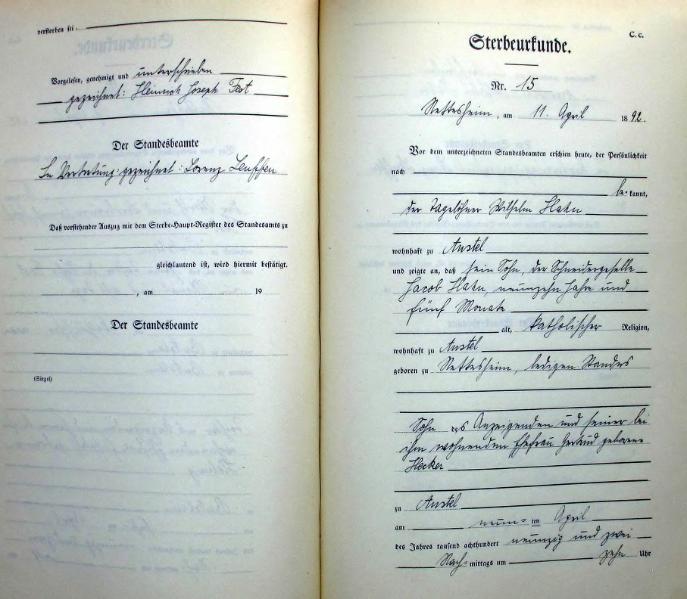 verstorben sei
Vorgelesen, genehmigt und unterschrieben
gezeichnet: Heinrich Joseph Fest
Der Standesbeamte
In Vertretung gezeichnet: Lorenz Leuffen
Daß vorstehender Auszug mit dem Sterbe-Haupt-Register des Standesamts zu
gleichlautend ist, wird hiermit bestätigt.
, am 19
Der Standesbeamte
(Siegel)
C. c.
Sterbeurkunde.
Nr. 15
Nettesheim, am 11. April 1892.
Vor dem unterzeichneten Standesbeamten erschien heute, der Persönlichkeit
nach
be kannt,
der Tagelöhner Wilhelm Hahn
wohnhaft zu Anstel
und zeigte an, daß sein Sohn, der Schneidergeselle
Jacob Hahn, neunzehn Jahre und
fünf Monate
alt, katholischer Religion,
wohnhaft zu Anstel
geboren zu Nettesheim, ledigen Standes
Sohn des Anzeigenden und seiner bei
ihm wohnenden Ehefrau Gertrud geborene
Hecker
zu Anstel
am neun- ten April
des Jahres tausend achthundert neunzig und zwei
Nach- mittags um zehn Uhr